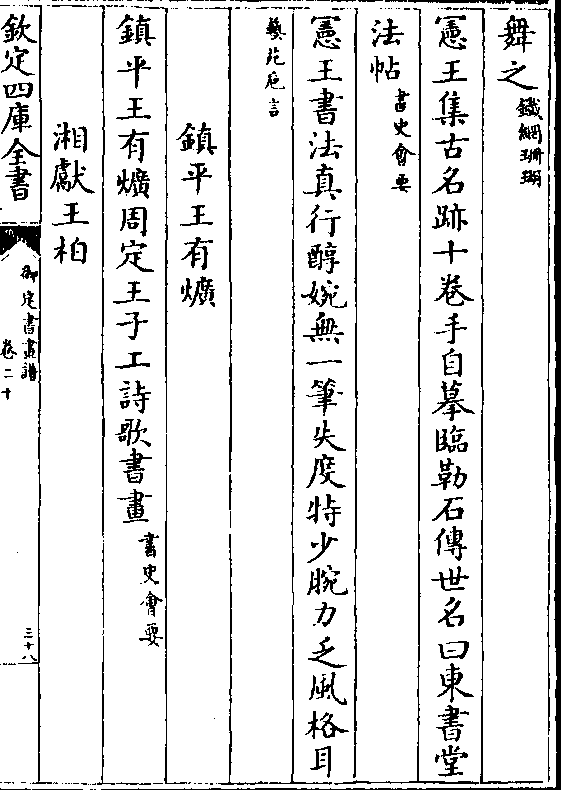 舞之鐵網珊瑚
憲王集古名跡十卷手自摹臨勒石傳世名曰東書堂
法帖書史會要
憲王書法真行醇婉無一筆失度特少腕力乏風格耳
藝苑卮言
鎮平王有爌
鎮平王有爌周定王子工詩歌書畫書史會要
湘獻王柏
欽定四庫全書
御定書畫譜
卷二十
三十八